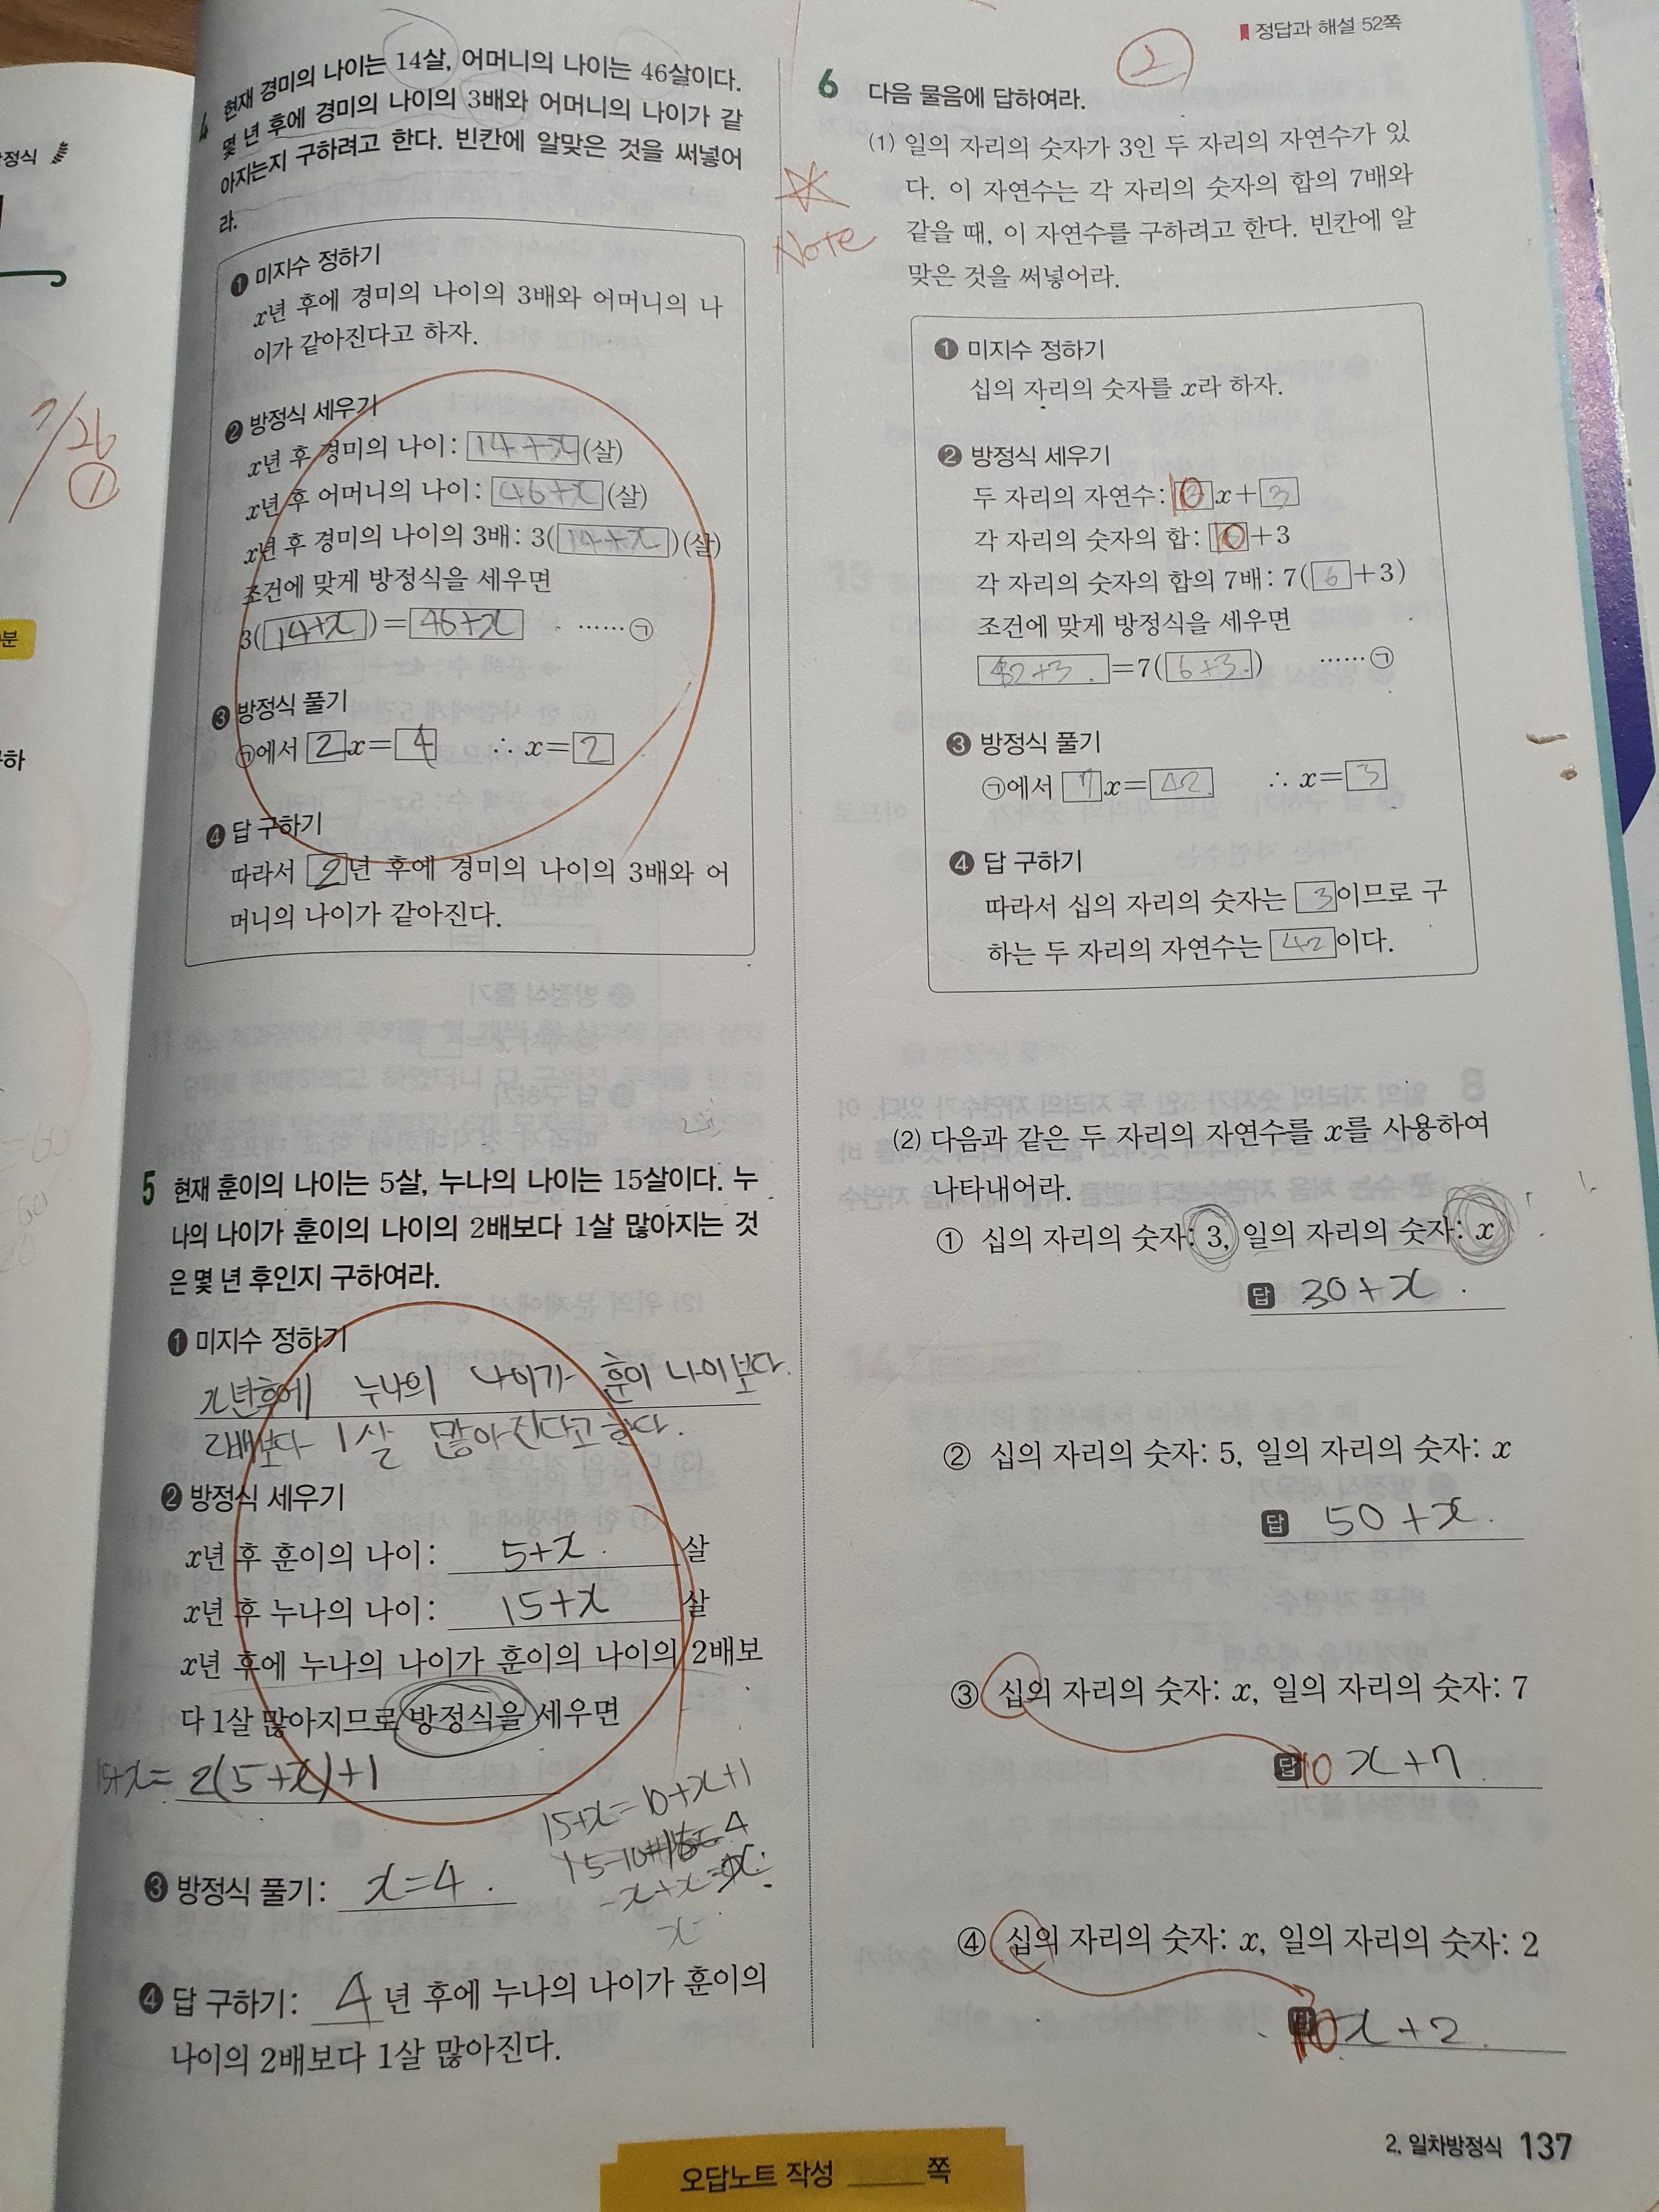 정답과 해설 52쪽
정식
7/26
①
분
하
4 현재 경미의 나이는 14살, 어머니의 나이는 46살이다.
몇 년 후에 경미의 나이의 3배와 어머니의 나이가 같
아지는지 구하려고 한다. 빈칸에 알맞은 것을 써넣어
라.
❶ 미지수 정하기
x년 후에 경미의 나이의 3배와 어머니의 나
이가 같아진다고 하자.
❷ 방정식 세우기
x년 후 경미의 나이: 14+x (살)
x년 후 어머니의 나이: 46+x (살)
x년 후 경미의 나이의 3배: 3(14+x)(살)
조건에 맞게 방정식을 세우면
3(14+x)=46+x ……㉠
❸ 방정식 풀기
㉠에서 2x=4 ∴ x=2
❹ 답 구하기
따라서 2년 후에 경미의 나이의 3배와 어
머니의 나이가 같아진다.
5 현재 훈이의 나이는 5살, 누나의 나이는 15살이다. 누
나의 나이가 훈이의 나이의 2배보다 1살 많아지는 것
은 몇 년 후인지 구하여라.
❶ 미지수 정하기
x년후에 누나의 나이가 훈이 나이보다
2배보다 1살 많아진다고 한다.
❷ 방정식 세우기
x년 후 훈이의 나이: 5+x 살
x년 후 누나의 나이: 15+x 살
x년 후에 누나의 나이가 훈이의 나이의 2배보
다 1살 많아지므로 방정식을 세우면
15+x= 2(5+x)+1
15+x=10+x+1
❸ 방정식 풀기: x=4.
❹ 답 구하기: 4년 후에 누나의 나이가 훈이의
나이의 2배보다 1살 많아진다.
②
6 다음 물음에 답하여라.
Note
(1) 일의 자리의 숫자가 3인 두 자리의 자연수가 있
다. 이 자연수는 각 자리의 숫자의 합의 7배와
같을 때, 이 자연수를 구하려고 한다. 빈칸에 알
맞은 것을 써넣어라.
❶ 미지수 정하기
십의 자리의 숫자를 x라 하자.
❷ 방정식 세우기
두 자리의 자연수: 10x+3
각 자리의 숫자의 합: +3
각 자리의 숫자의 합의 7배: 7(6+3)
조건에 맞게 방정식을 세우면
=7(6+3.) ……㉠
❸ 방정식 풀기
㉠에서 7x=42 ∴ x=3
❹ 답 구하기
따라서 십의 자리의 숫자는 3이므로 구
하는 두 자리의 자연수는 42이다.
(2) 다음과 같은 두 자리의 자연수를 x를 사용하여
나타내어라.
① 십의 자리의 숫자: 3, 일의 자리의 숫자: x
답 30+x.
② 십의 자리의 숫자: 5, 일의 자리의 숫자: x
답 50+x.
③ 십의 자리의 숫자: x, 일의 자리의 숫자: 7
답 10x+7.
④ 십의 자리의 숫자: x, 일의 자리의 숫자: 2
10x+2.
2. 일차방정식 137
오답노트 작성 ____쪽